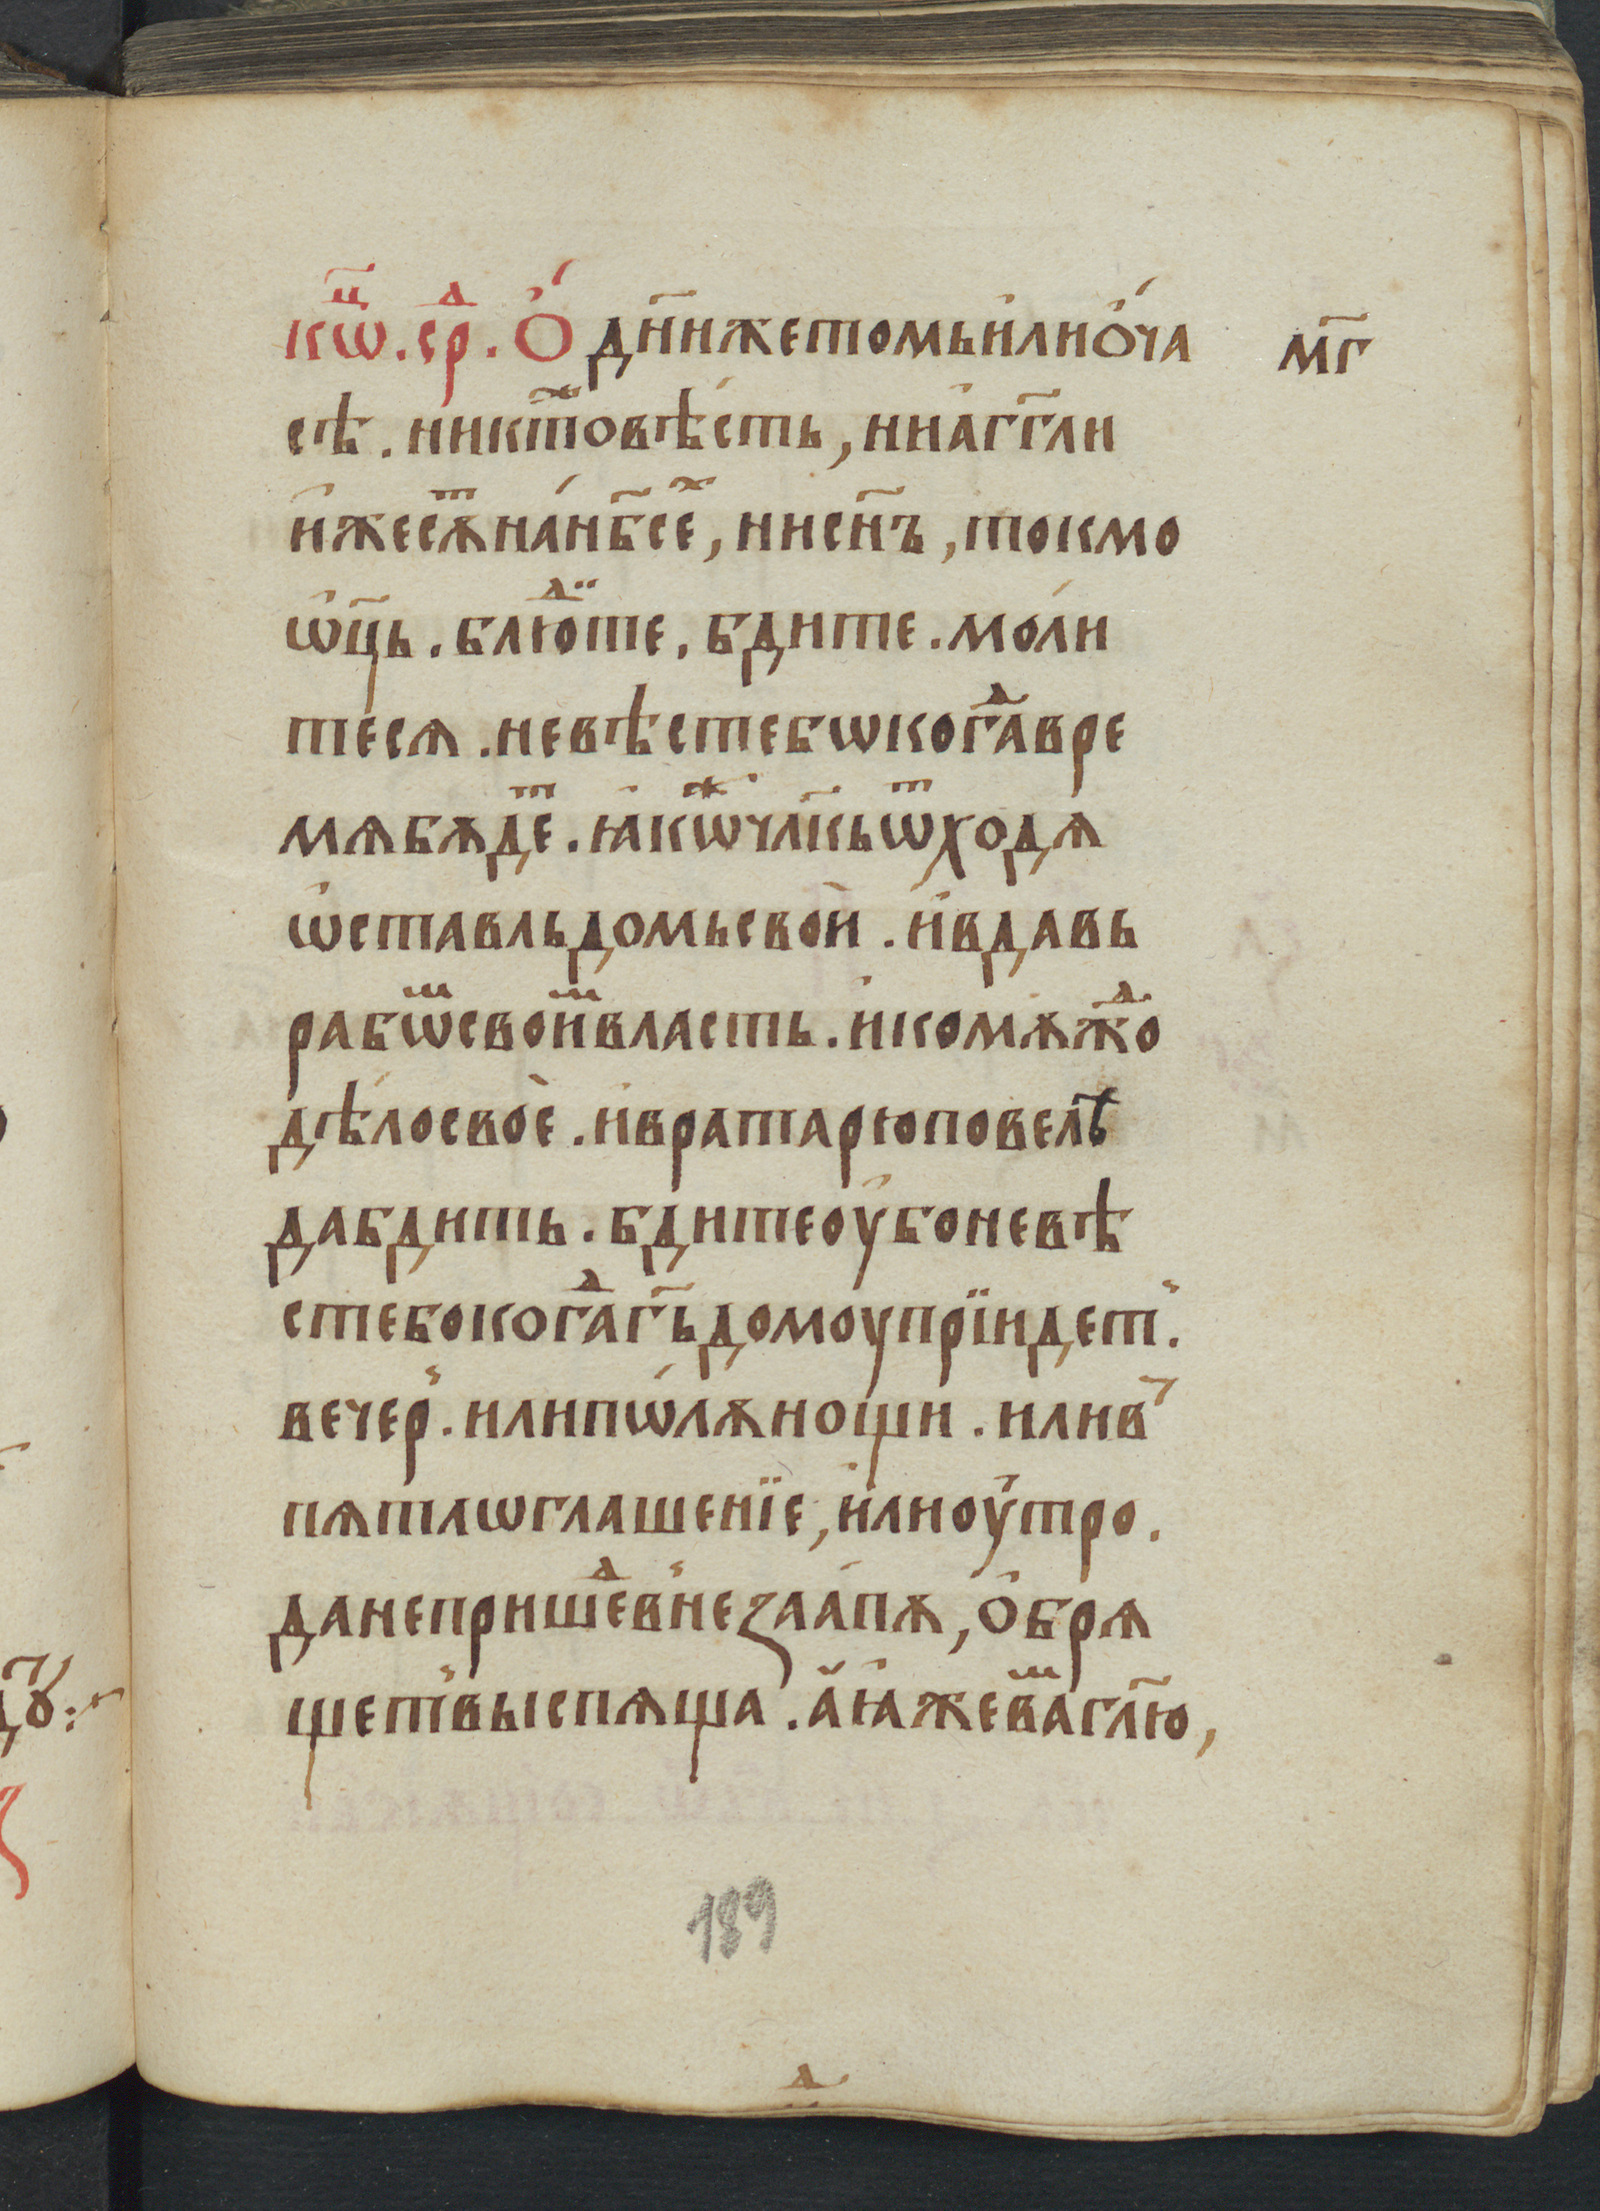 кѡⷰ҇. срⷣ. Ѻ҆́ дн҃ижетомьи҆лио҆́ча мг҃
сѣ. никтⷤовѣ́сть, ниа҆́гг҃ли
и҆̑жесѫⷮна́нб҃сеⷯ, нисн҃ъ, токмо
ѡ҆ц҃ь. блюⷣте. бдите. моли́
те́сѧ. невѣстебѡкогаⷣвре
мѧбѫдеⷮ. ꙗ҆кѡⷤчл҃кьѿходѧ
ѡ҆ставльдомьсвои. и҆вдавь
рабѡⷨсвоиⷨвласть. и҆комѫжⷣо
дѣ́лосвое. и҆вратарюповелѣ
дабдить. бдитеоу҆боневѣ
стебокогаⷣгь҃домоуприїидет꙽.
вечер꙽. илипѡлѫно́щи. илив꙽
пѧтлѡглашенїе, и҆лиоу҆тро.
данепришеⷣв꙽незаапѫ, ѻ҆брѧ
щет꙽выспѧща. а҆ꙗ҆жеваⷨгл҃ю,
189